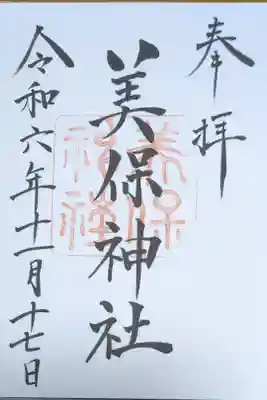 奉拝
美保神社
美保
神社
令和六年十一月十七日